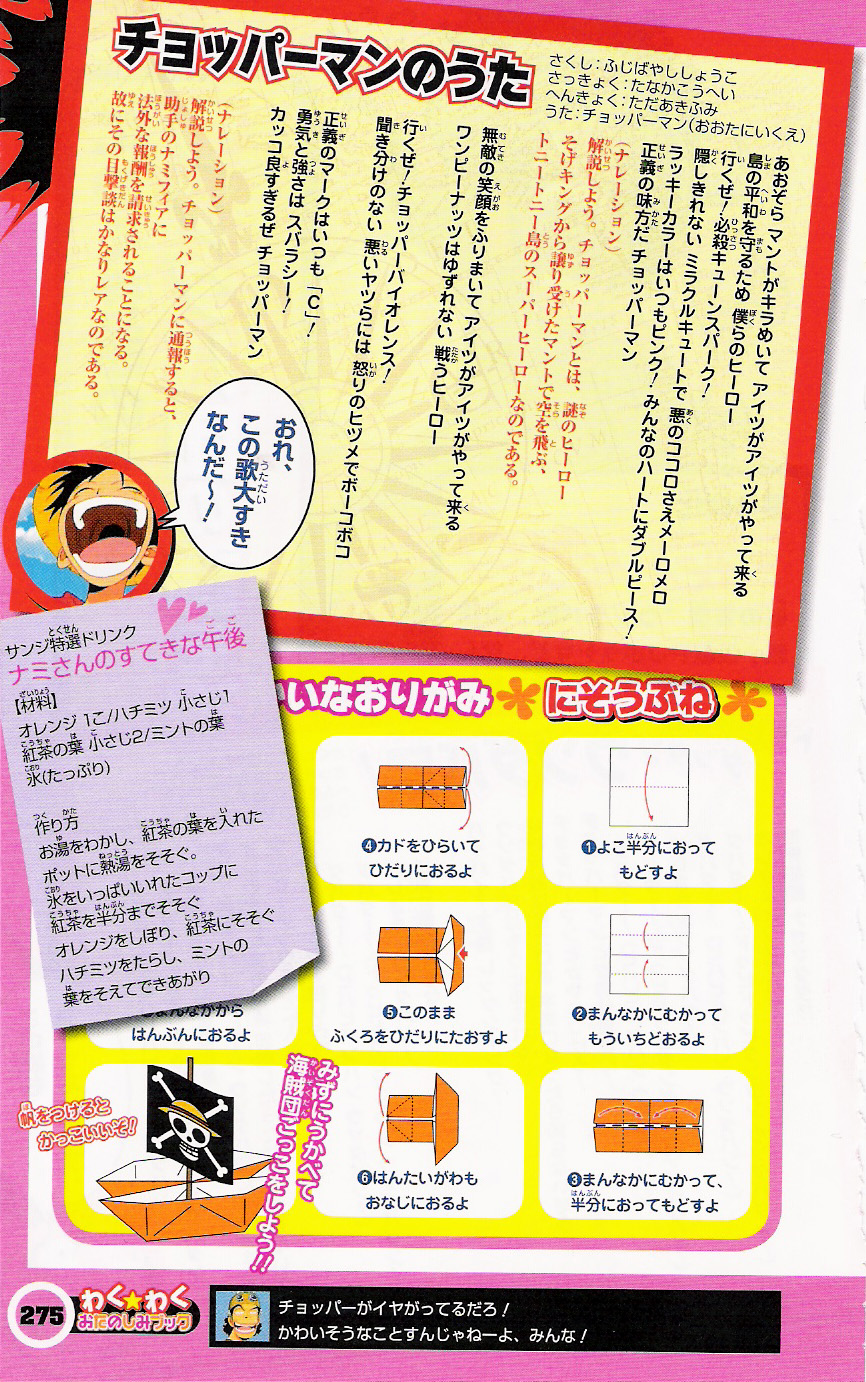 チョッパーマンのうた
さくし:ふじばやししょうこ
さっきょく:たなかこうへい
へんきょく:ただあきふみ
うた:チョッパーマン(おおたにいくえ)
あおぞら マントがキラめいて アイツがアイツがやって来る
島の平和を守るため 僕らのヒーロー
行くぜ!必殺キューンスパーク!
隠しきれない ミラクルキュートで 悪のココロさえメーロメロ
ラッキーカラーはいつもピンク! みんなのハートにダブルピース!
正義の味方だ チョッパーマン
(ナレーション)
解説しよう。チョッパーマンとは、謎のヒーロー
そげキングから譲り受けたマントで空を飛ぶ、
トニートニー島のスーパーヒーローなのである。
無敵の笑顔をふりまいて アイツがアイツがやって来る
ワンピーナッツはゆずれない 戦うヒーロー
行くぜ!チョッパーバイオレンス!
聞き分けのない 悪いヤツらには 怒りのヒヅメでボーコボコ
正義のマークはいつも「C」!
勇気と強さは スバラシー!
カッコ良すぎるぜ チョッパーマン
(ナレーション)
解説しよう。チョッパーマンに通報すると、
助手のナミフィアに
法外な報酬を請求されることになる。
故にその目撃談はかなりレアなのである。
おれ、
この歌大すき
なんだ〜!
サンジ特選ドリンク
ナミさんのすてきな午後
【材料】
オレンジ 1こ/ハチミツ 小さじ1
紅茶の葉 小さじ2/ミントの葉
氷(たっぷり)
作り方
お湯をわかし、紅茶の葉を入れた
ポットに熱湯をそそぐ。
氷をいっぱいいれたコップに
紅茶を半分までそそぐ
オレンジをしぼり、紅茶にそそぐ
ハチミツをたらし、ミントの
葉をそえてできあがり
いなおりがみ
にそうぶね
❶よこ半分におって
もどすよ
❷まんなかにむかって
もういちどおるよ
❸まんなかにむかって、
半分におってもどすよ
❹カドをひらいて
ひだりにおるよ
❺このまま
ふくろをひだりにたおすよ
❻はんたいがわも
おなじにおるよ
まんなかから
はんぶんにおるよ
みずにうかべて
海賊団ごっこをしよう!!
帆をつけると
かっこいいぞ!
275
わく★わく
おたのしみブック
チョッパーがイヤがってるだろ!
かわいそうなことすんじゃねーよ、みんな!